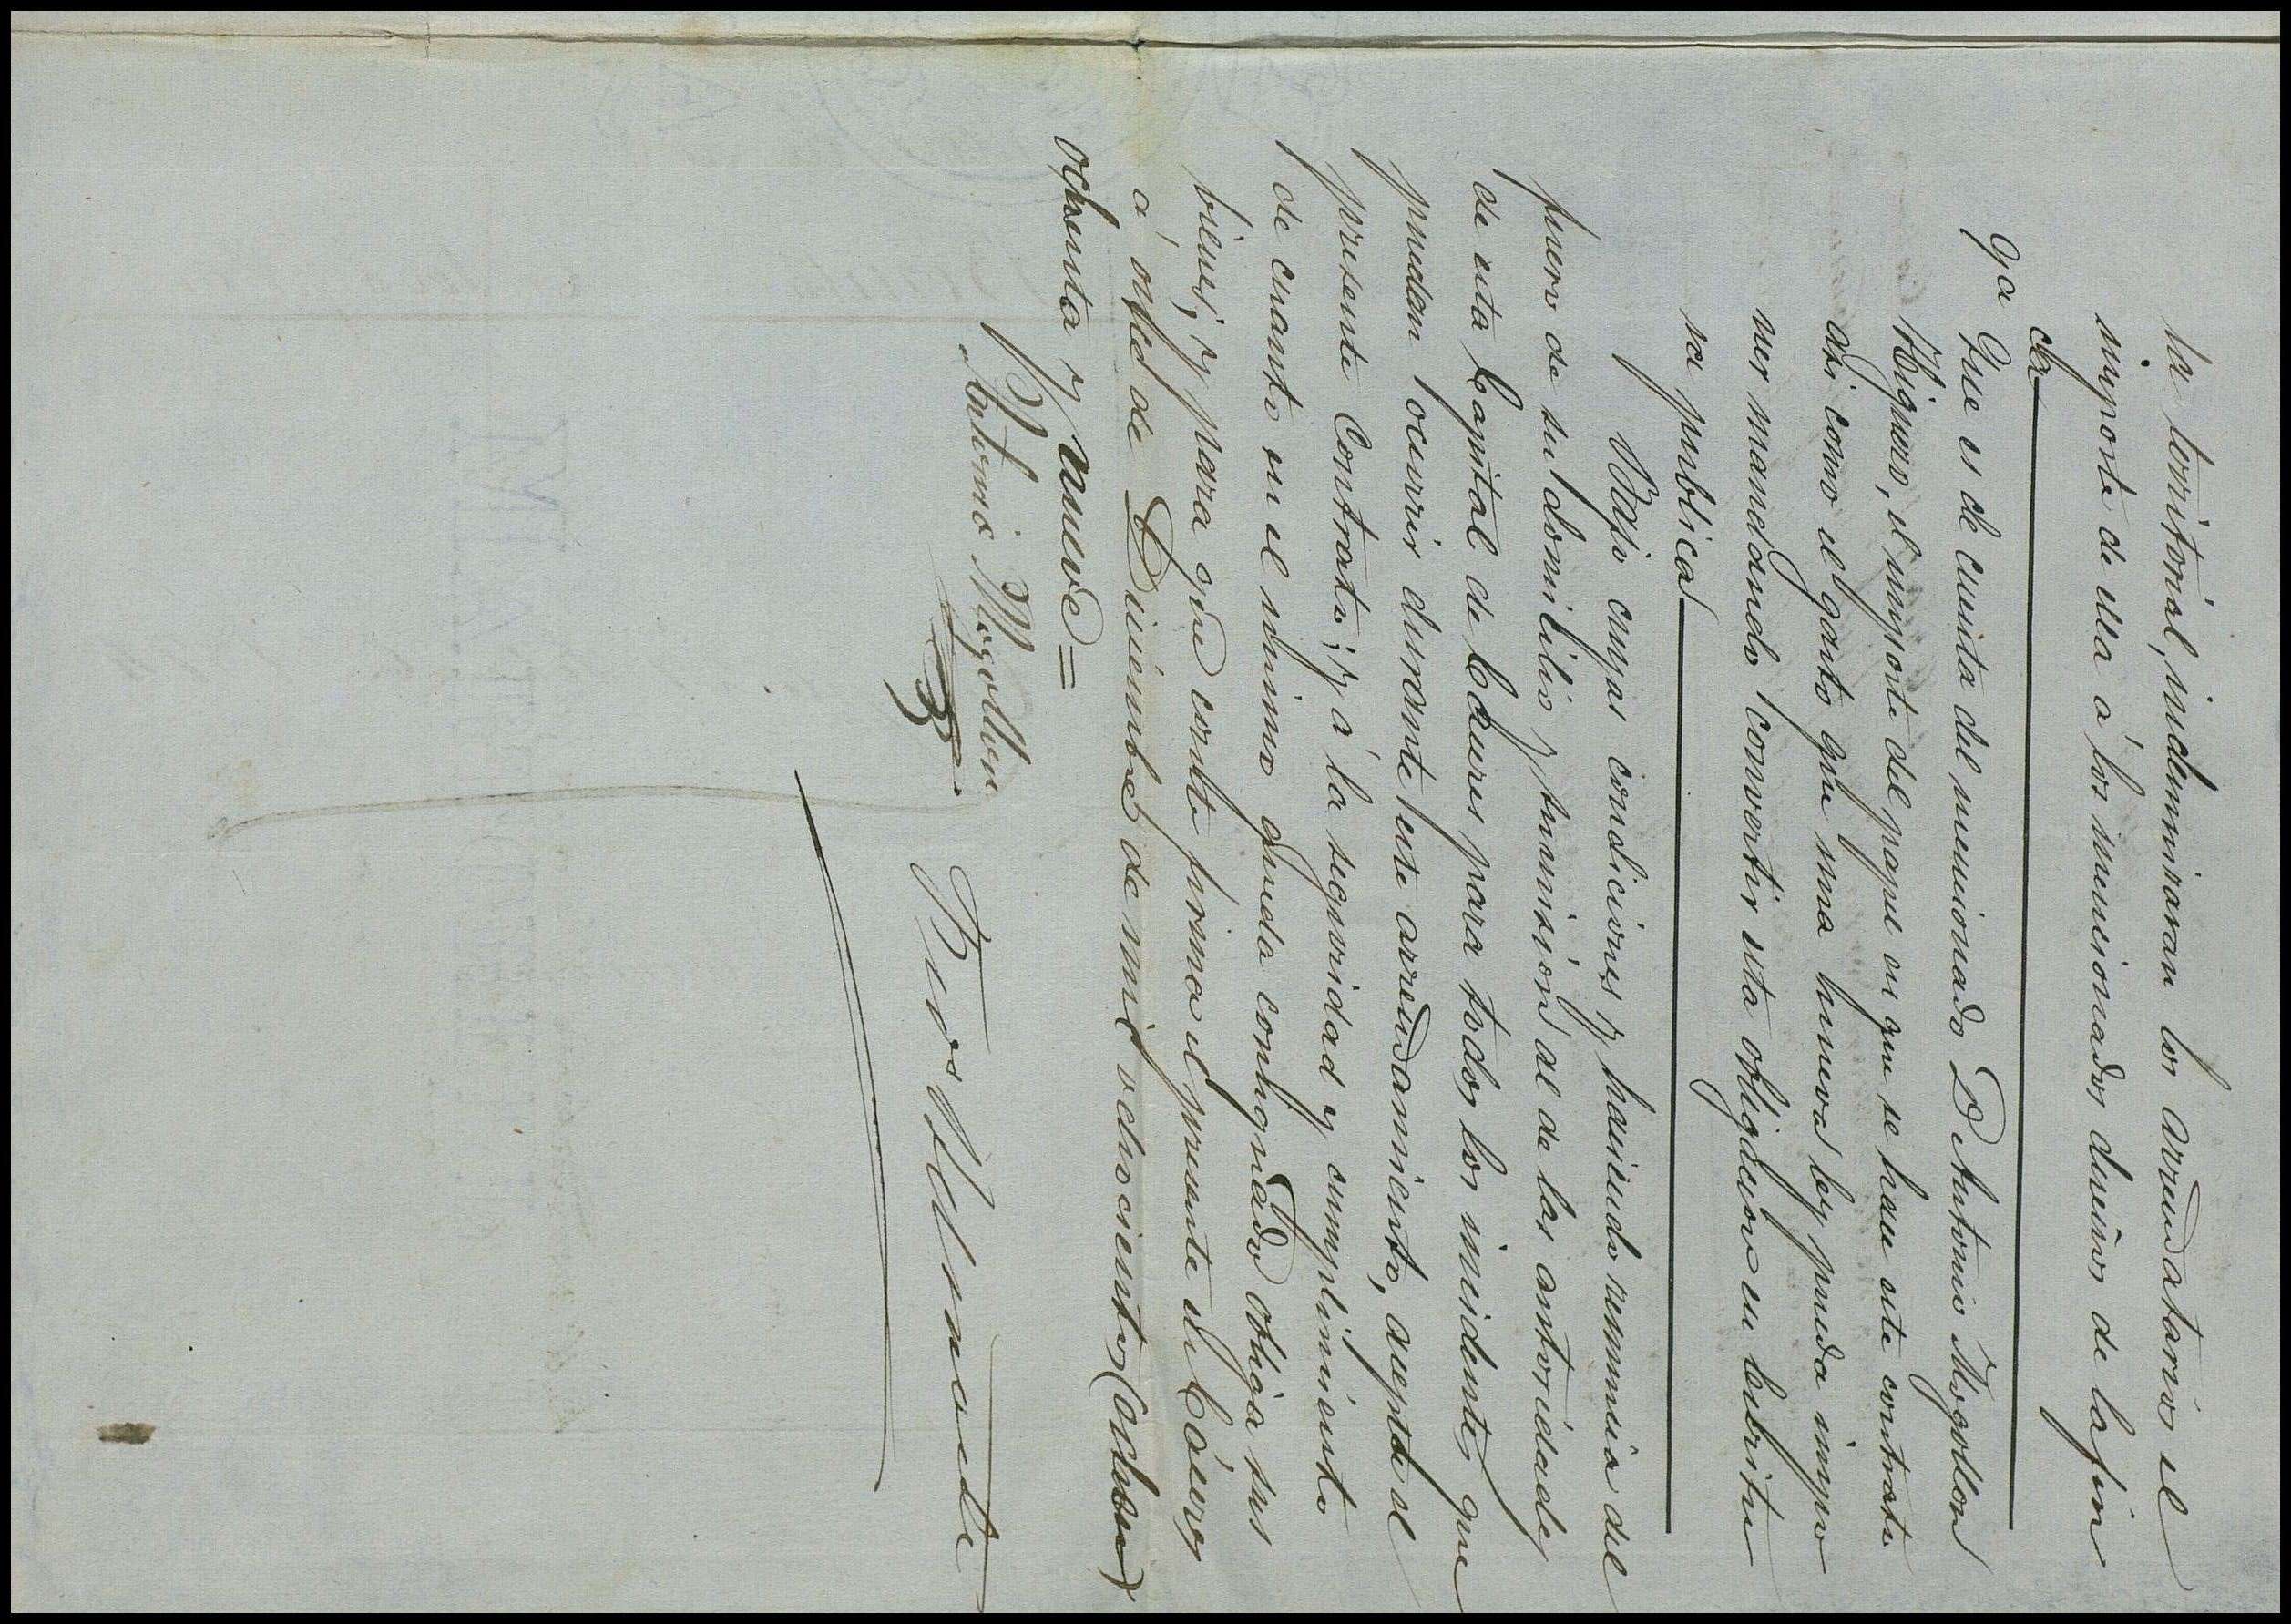 ta territorial, indemnisaran los arrendatarios el
importe de ella á los mencionados dueños de la fin
ca
9a Que es de cuenta del mencionado D Antonio Mogollon
Higuero, el importe del papel en que se hace este contrato
asi como el gasto que una nueva ley pueda impo
ner mandando convertir esta obligacion en Escritu
ra publica
Bajo cuyas condiciones y haciendo renuncia del
fuero de su domicilio y sumision al de las autoridades
de esta Capital de Caceres para todos los incidentes que
puedan ocurrir durante este arrendamiento, acepta el
presente Contrato; y á la seguridad y cumplimiento
de cuanto en el mismo queda consignado obliga sus
bienes; y para que conste firma el presente en Cáceres
á once de Diciembre de mil ochocientos (ochen)
ochenta y nueve=
Antonio Mogollon